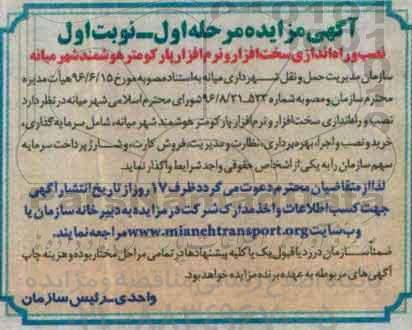 آگهی مزایده مرحله اول - نوبت اول
نصب و راه اندازی سخت افزار و نرم افزار پارکومتر هوشمند شهر میانه
سازمان مدیریت حمل و نقل شهرداری میانه به استناد مصوبه مورخ ۹۶/۶/۱۵ هیأت مدیره
محترم سازمان و مصوبه شماره ۵۲۳-۹۶/۸/۲۱ شورای محترم اسلامی شهر میانه در نظر دارد
نصب و راه اندازی سخت افزار و نرم افزار پارکومتر هوشمند شهر میانه، شامل سرمایه گذاری،
خرید و نصب و اجرا، بهره برداری، نظارت و مدیریت، فروش کارت، و شارژ پرداخت سرمایه
سهم سازمان را به یکی از اشخاص حقوقی واجد شرایط واگذار نماید.
لذا از متقاضیان محترم دعوت می گردد ظرف ۱۷ روز از تاریخ انتشار آگهی
جهت کسب اطلاعات و اخذ مدارک شرکت در مزایده به دبیرخانه سازمان یا
وب سایت www.mianehtransport.org مراجعه نمایند.
ضمناً سازمان در رد یا قبول یک یا کلیه پیشنهادها در تمامی مراحل مختار بوده و هزینه چاپ
آگهی های مربوطه به عهده برنده مزایده خواهد بود.
واحدی - رئیس سازمان